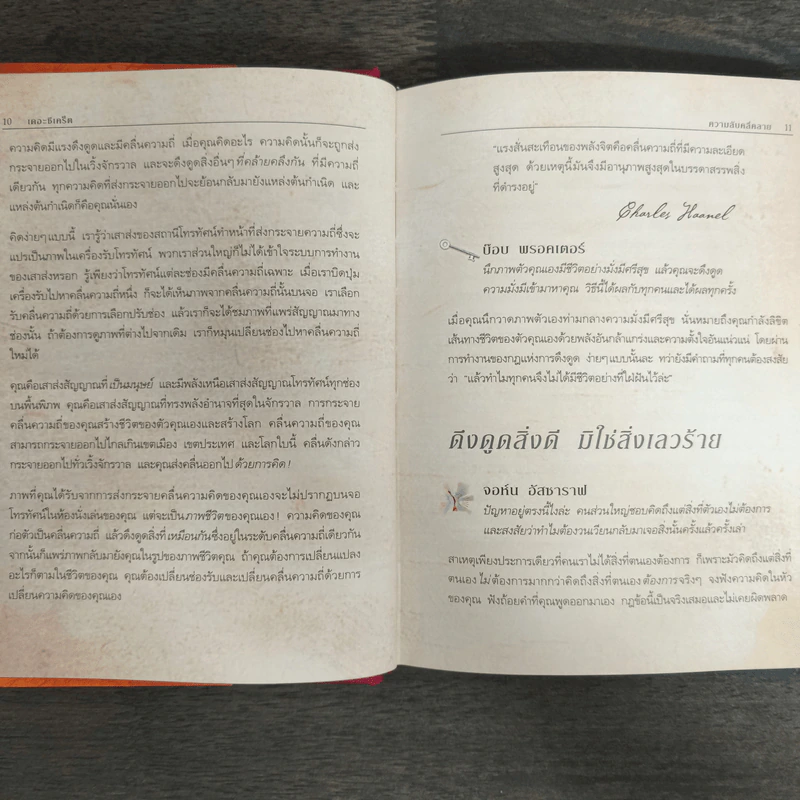 10 เดอะซีเคร็ต
ความคิดมีแรงดึงดูดและมีคลื่นความถี่ เมื่อคุณคิดอะไร ความคิดนั้นก็จะถูกส่ง
กระจายออกไปในเวิ้งจักรวาล และจะดึงดูดสิ่งอื่นๆ ที่คล้ายคลึงกัน ที่มีความถี่
เดียวกัน ทุกความคิดที่ส่งกระจายออกไปจะย้อนกลับมายังแหล่งต้นกำเนิด และ
แหล่งต้นกำเนิดก็คือคุณนั่นเอง
คิดง่ายๆ แบบนี้ เรารู้ว่าเสาส่งของสถานีโทรทัศน์ทำหน้าที่ส่งกระจายความถี่ซึ่งจะ
แปรเป็นภาพในเครื่องรับโทรทัศน์ พวกเราส่วนใหญ่ก็ไม่ได้เข้าใจระบบการทำงาน
ของเสาส่งหรอก รู้เพียงว่าโทรทัศน์แต่ละช่องมีคลื่นความถี่เฉพาะ เมื่อเราบิดปุ่ม
เครื่องรับไปหาคลื่นความถี่หนึ่ง ก็จะได้เห็นภาพจากคลื่นความถี่นั้นบนจอ เราเลือก
รับคลื่นความถี่ด้วยการเลือกปรับช่อง แล้วเราก็จะได้ชมภาพที่แพร่สัญญาณมาทาง
ช่องนั้น ถ้าต้องการดูภาพที่ต่างไปจากเดิม เราก็หมุนเปลี่ยนช่องไปหาคลื่นความถี่
ใหม่ได้
คุณคือเสาส่งสัญญาณที่เป็นมนุษย์ และมีพลังเหนือเสาส่งสัญญาณโทรทัศน์ทุกช่อง
บนพื้นพิภพ คุณคือเสาส่งสัญญาณที่ทรงพลังอำนาจที่สุดในจักรวาล การกระจาย
คลื่นความถี่ของคุณสร้างชีวิตของตัวคุณเองและสร้างโลก คลื่นความถี่ของคุณ
สามารถกระจายออกไปไกลเกินเขตเมือง เขตประเทศ และโลกใบนี้ คลื่นดังกล่าว
กระจายออกไปทั่วเวิ้งจักรวาล และคุณส่งคลื่นออกไปด้วยการคิด!
ภาพที่คุณได้รับจากการส่งกระจายคลื่นความคิดของคุณเองจะไม่ปรากฏบนจอ
โทรทัศน์ในห้องนั่งเล่นของคุณ แต่จะเป็นภาพชีวิตของคุณเอง! ความคิดของคุณ
ก่อตัวเป็นคลื่นความถี่ แล้วดึงดูดสิ่งที่เหมือนกันซึ่งอยู่ในระดับคลื่นความถี่เดียวกัน
จากนั้นก็แพร่ภาพกลับมายังคุณในรูปของภาพชีวิตคุณ ถ้าคุณต้องการเปลี่ยนแปลง
อะไรก็ตามในชีวิตของคุณ คุณต้องเปลี่ยนช่องรับและเปลี่ยนคลื่นความถี่ด้วยการ
เปลี่ยนความคิดของคุณเอง
ความลับคลี่คลาย 11
"แรงสั่นสะเทือนของพลังจิตคือคลื่นความถี่ที่มีความละเอียด
สูงสุด ด้วยเหตุนี้มันจึงมีอานุภาพสูงสุดในบรรดาสรรพสิ่ง
ที่ดำรงอยู่"
Charles Haanel
บ๊อบ พรอคเตอร์
นึกภาพตัวคุณเองมีชีวิตอย่างมั่งมีศรีสุข แล้วคุณจะดึงดูด
ความมั่งมีเข้ามาหาคุณ วิธีนี้ได้ผลกับทุกคนและได้ผลทุกครั้ง
เมื่อคุณนึกวาดภาพตัวเองท่ามกลางความมั่งมีศรีสุข นั่นหมายถึงคุณกำลังลิขิต
เส้นทางชีวิตของตัวคุณเองด้วยพลังอันกล้าแกร่งและความตั้งใจอันแน่วแน่ โดยผ่าน
การทำงานของกฎแห่งการดึงดูด ง่ายๆ แบบนั้นละ ทว่ายังมีคำถามที่ทุกคนต้องสงสัย
ว่า "แล้วทำไมทุกคนจึงไม่ได้มีชีวิตอย่างที่ใฝ่ฝันไว้ล่ะ"
ดึงดูดสิ่งดี มิใช่สิ่งเลวร้าย
จอห์น อัสซาราฟ
ปัญหาอยู่ตรงนี้ไงล่ะ คนส่วนใหญ่ชอบคิดถึงแต่สิ่งที่ตัวเองไม่ต้องการ
และสงสัยว่าทำไมต้องวนเวียนกลับมาเจอสิ่งนั้นครั้งแล้วครั้งเล่า
สาเหตุเพียงประการเดียวที่คนเราไม่ได้สิ่งที่ตนเองต้องการ ก็เพราะมัวคิดถึงแต่สิ่งที่
ตนเองไม่ต้องการมากกว่าคิดถึงสิ่งที่ตนเองต้องการจริงๆ จงฟังความคิดในหัว
ของคุณ ฟังถ้อยคำที่คุณพูดออกมาเอง กฎข้อนี้เป็นจริงเสมอและไม่เคยผิดพลาด